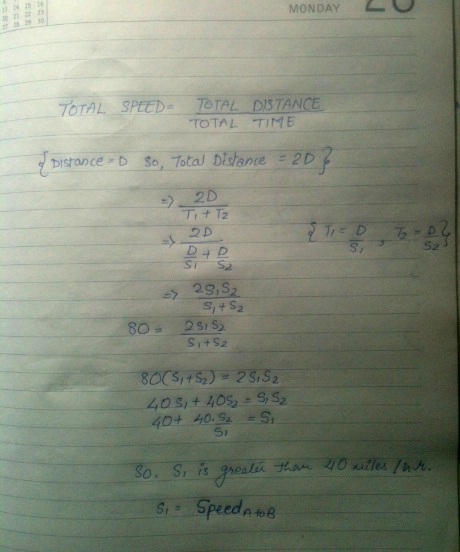 MONDAY 26
TOTAL SPEED = TOTAL DISTANCE / TOTAL TIME
{Distance = D So, Total Distance = 2D}
=> 2D / T1 + T2
=> 2D / D/S1 + D/S2 { T1 = D/S1 , T2 = D/S2 }
=> 2S1S2 / S1 + S2
80 = 2S1S2 / S1 + S2
80(S1+S2) = 2S1S2
40S1 + 40S2 = S1S2
40 + 40.S2/S1 = S1
So. S1 is greater than 40 miles/hr.
S1 = Speed A to B